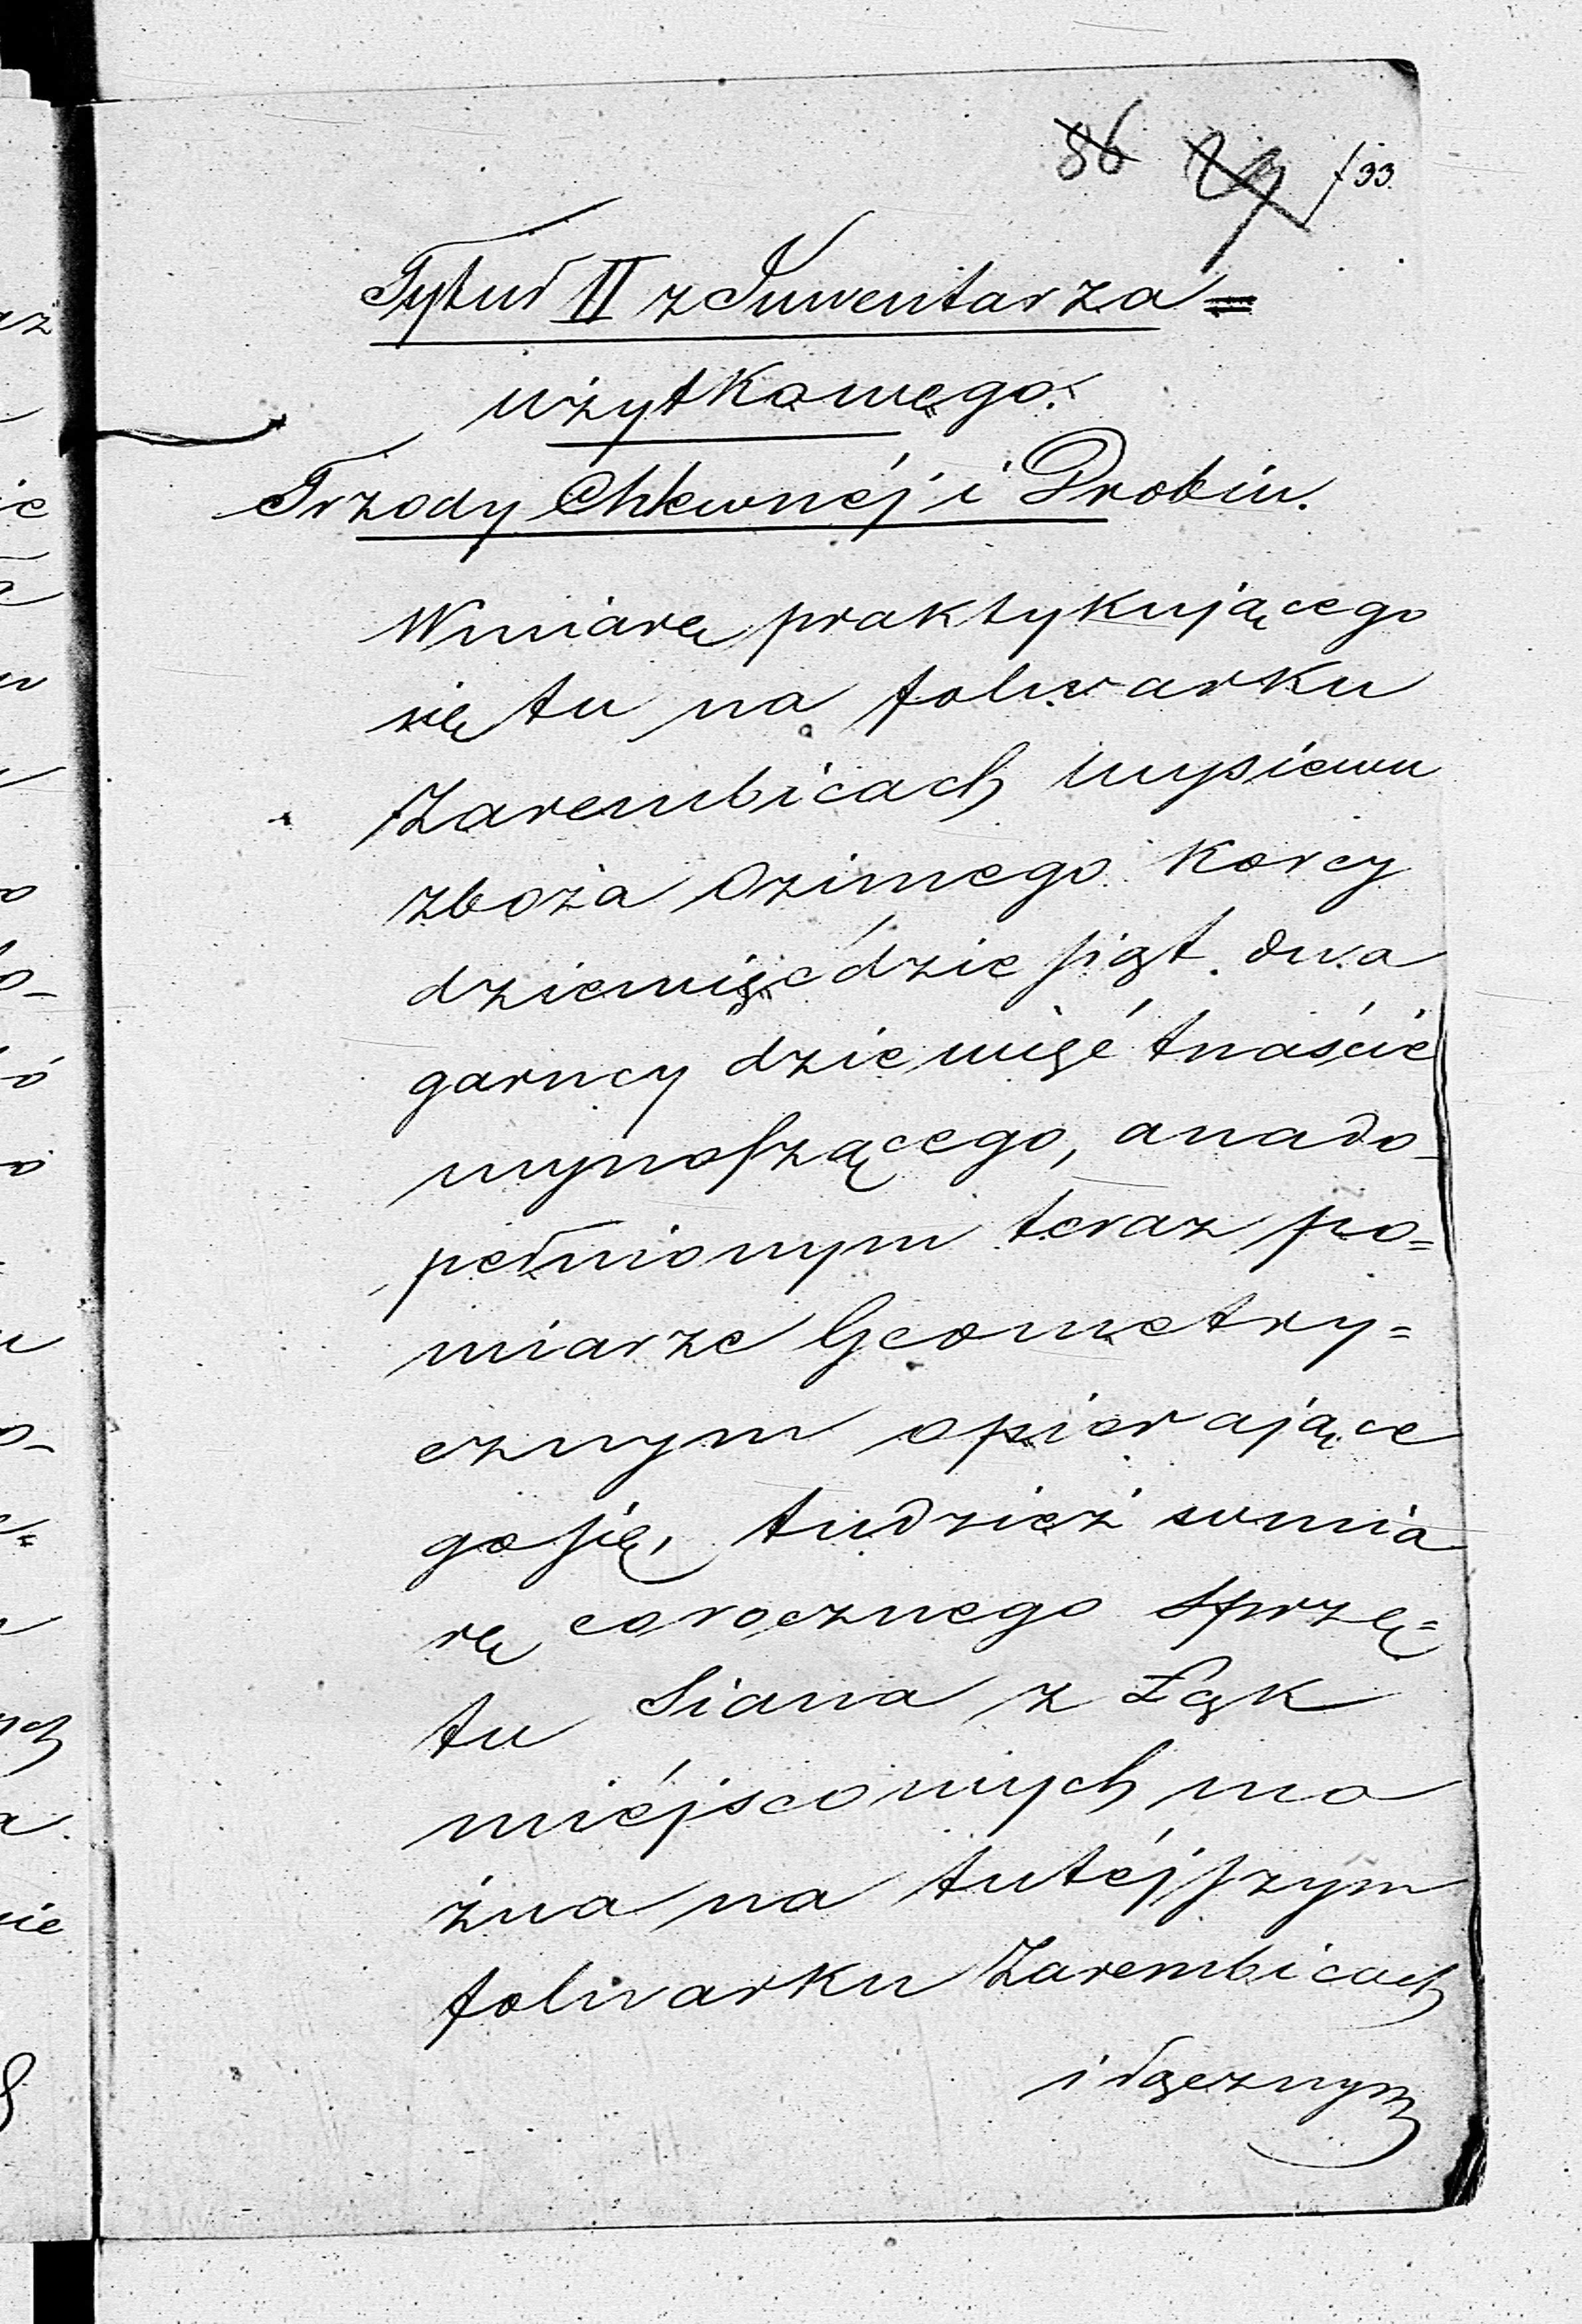 86 133
Tytuł II z Inwentarza=
użytkowego.
Trzody Chlewnéj i Drobiu.
Wmiarę praktykującego
się tu na folwarku
Zarembicach wysiewu
zboża Ozimego korcy
dziewięćdziesiąt dwa
garncy dziewiętnaście
wynoszącego, anado-
pełnionym teraz po=
miarze Geometry=
cznym opierające
gosię, tudzież wmia
rę corocznego sprzę=
tu Siana z Łąk
miéjscowych mo
żna na tutéjszym
folwarku Zarembicach
i łącznym